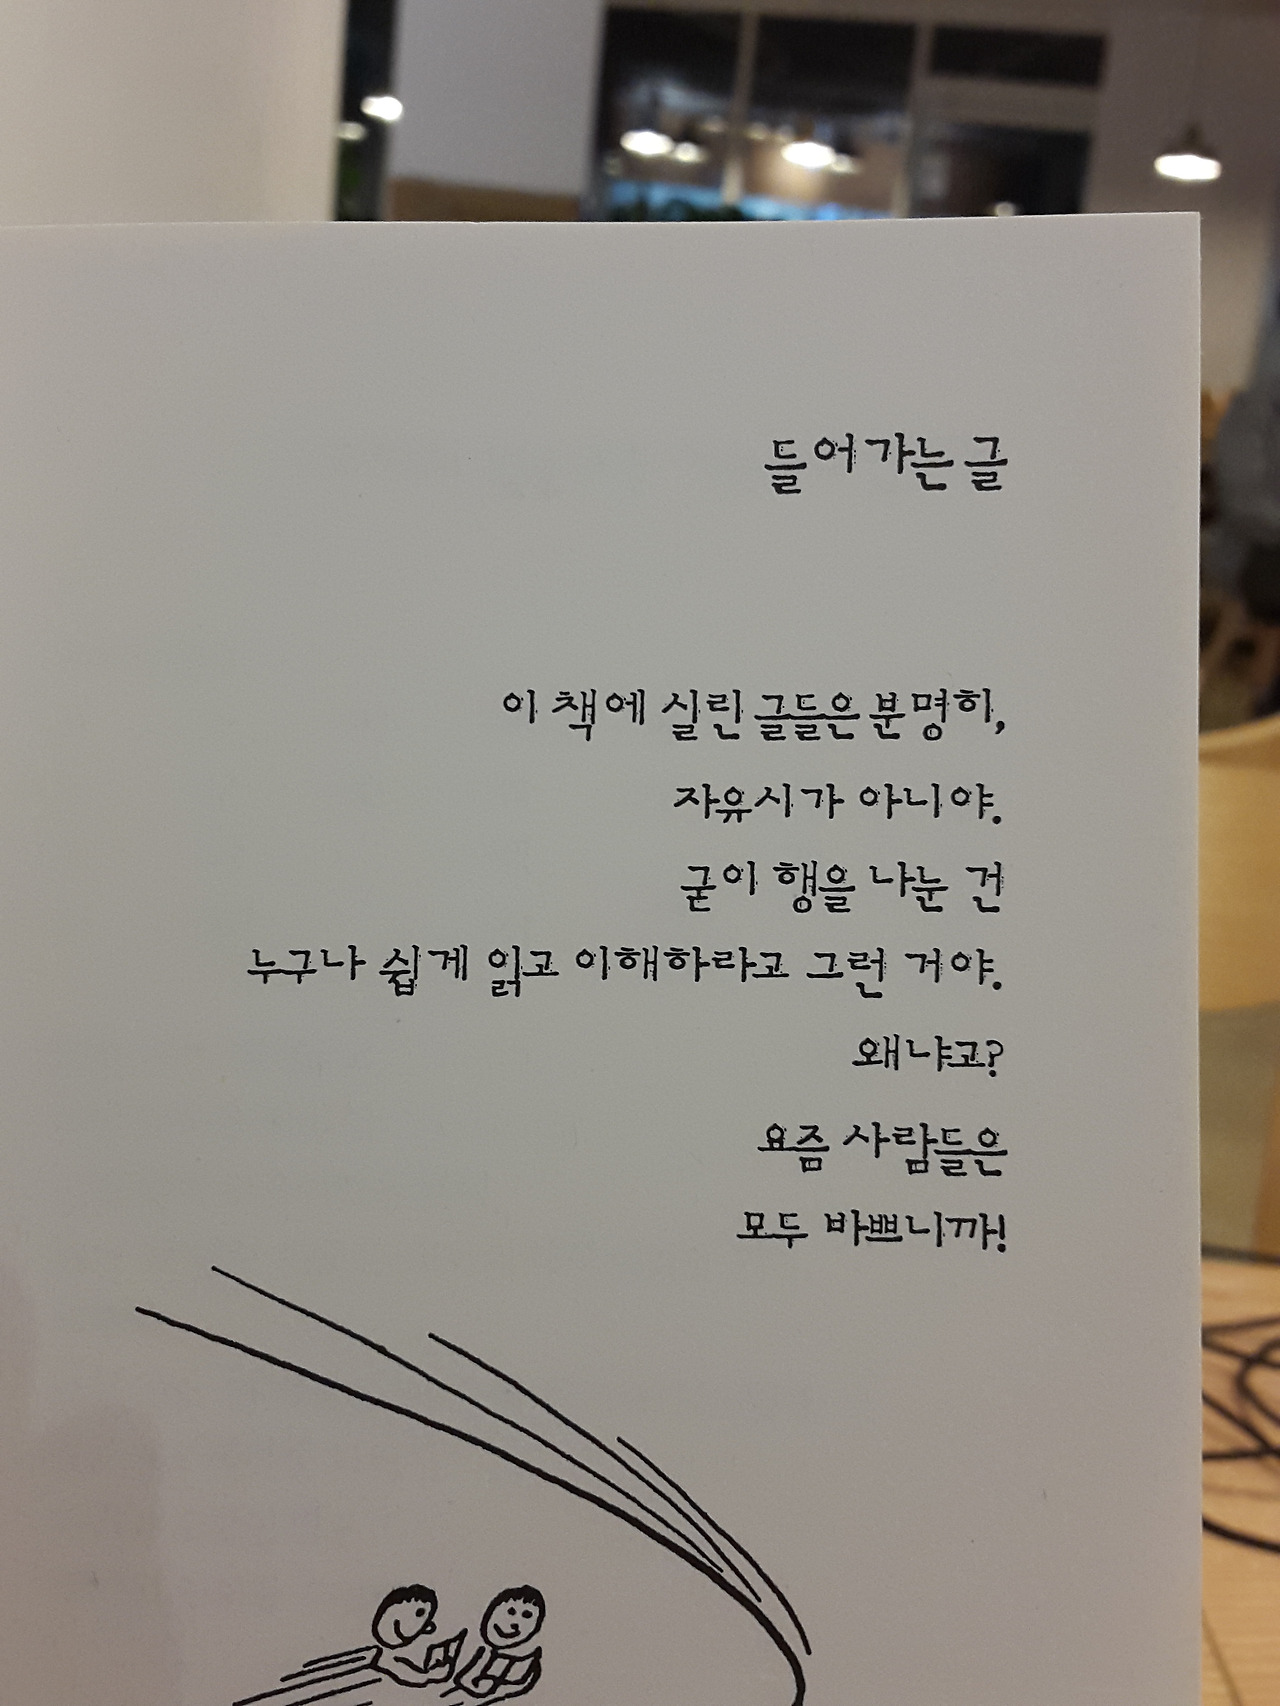 들어가는 글
이 책에 실린 글들은 분명히,
자유시가 아니야.
굳이 행을 나눈 건
누구나 쉽게 읽고 이해하라고 그런 거야.
왜냐고?
요즘 사람들은
모두 바쁘니까!